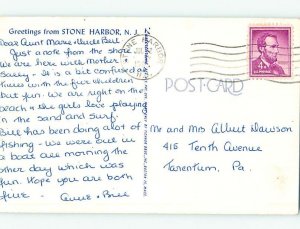 Greetings from STONE HARBOR, N. J.
Dear Aunt Marie & Uncle Bill
Just a note from the shore
We are here with Mother
Sailey - It is a bit confused at
times with four children
but fun. We are right on the
beach & the girls love playing
in the sand and surf.
Bill has been doing alot of
fishing - we were out in
a boat one morning the
other day which was
fun. Hope you are both
fine. Anne - Bill
STONE HARBOR
POST CARD
Mr and Mrs Albert Dawson
416 Tenth Avenue
Tarentum, Pa.